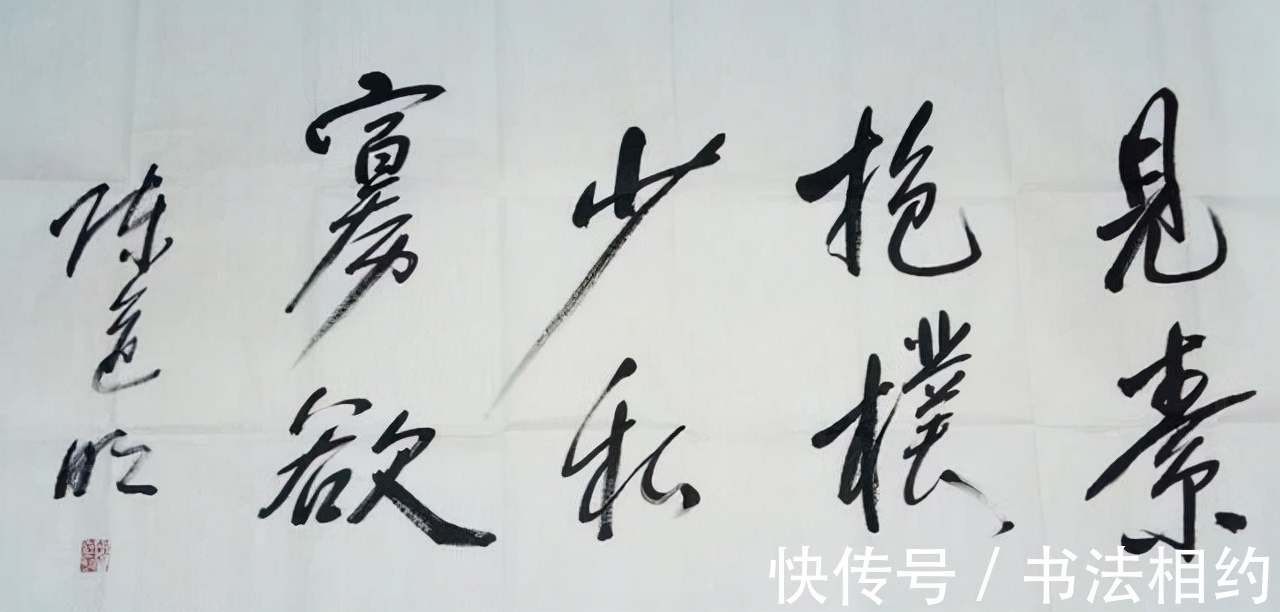 見素
抱樸
少私
寡欲
陳道明
快传号 / 书法相约